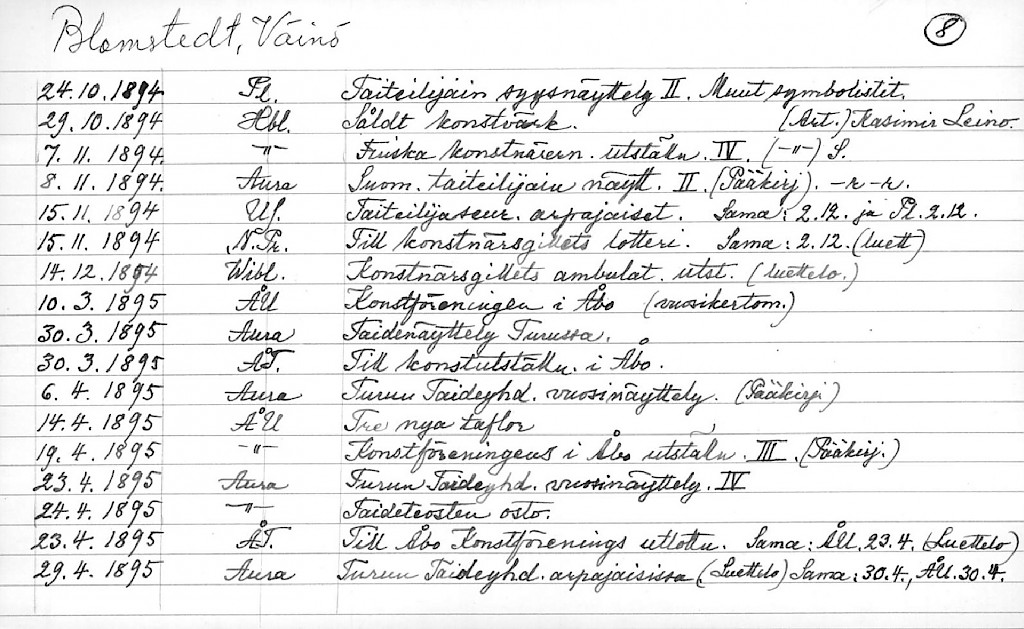 Blomstedt, Väinö 8
24.10.1894 Pl. Taiteilijain syysnäyttely II. Muut symbolistit.
29.10.1894 Hbl. Såldt konstvärk. (Art.) Kasimir Leino.
7.11.1894 -"- Finska konstnärern. utställn. IV. (-"-) S.
8.11.1894. Aura Suom. taiteilijain näytt. II. (Pääkirj). -r-r.
15.11.1894 US. Taiteilijaseur. arpajaiset. Sama: 2.12. ja Pl. 2.12.
15.11.1894 N.Pr. Till konstnärsgillets lotteri. Sama: 2.12. (luett)
14.12.1894 Wibl. Konstnärsgillets ambulat. utst. (luettelo.)
10.3.1895 ÅU Konstföreningen i Åbo (vuosikertom.)
30.3.1895 Aura Taidenäyttely Turussa.
30.3.1895 ÅT. Till konstutställn. i Åbo.
6.4.1895 Aura Turun Taideyhd. vuosinäyttely. (Pääkirj.)
14.4.1895 ÅU Tre nya taflor
19.4.1895 -"- Konstföreningens i Åbo utställn. III. (Pääkirj.)
23.4.1895 Aura Turun Taideyhd. vuosinäyttely. IV
24.4.1895 -"- Taideteosten osto.
23.4.1895 ÅT. Till Åbo Konstförenings utlottn. Sama: ÅU. 23.4. (Luettelo)
29.4.1895 Aura Turun Taideyhd. arpajaisissa (Luettelo) Sama: 30.4., ÅU. 30.4.